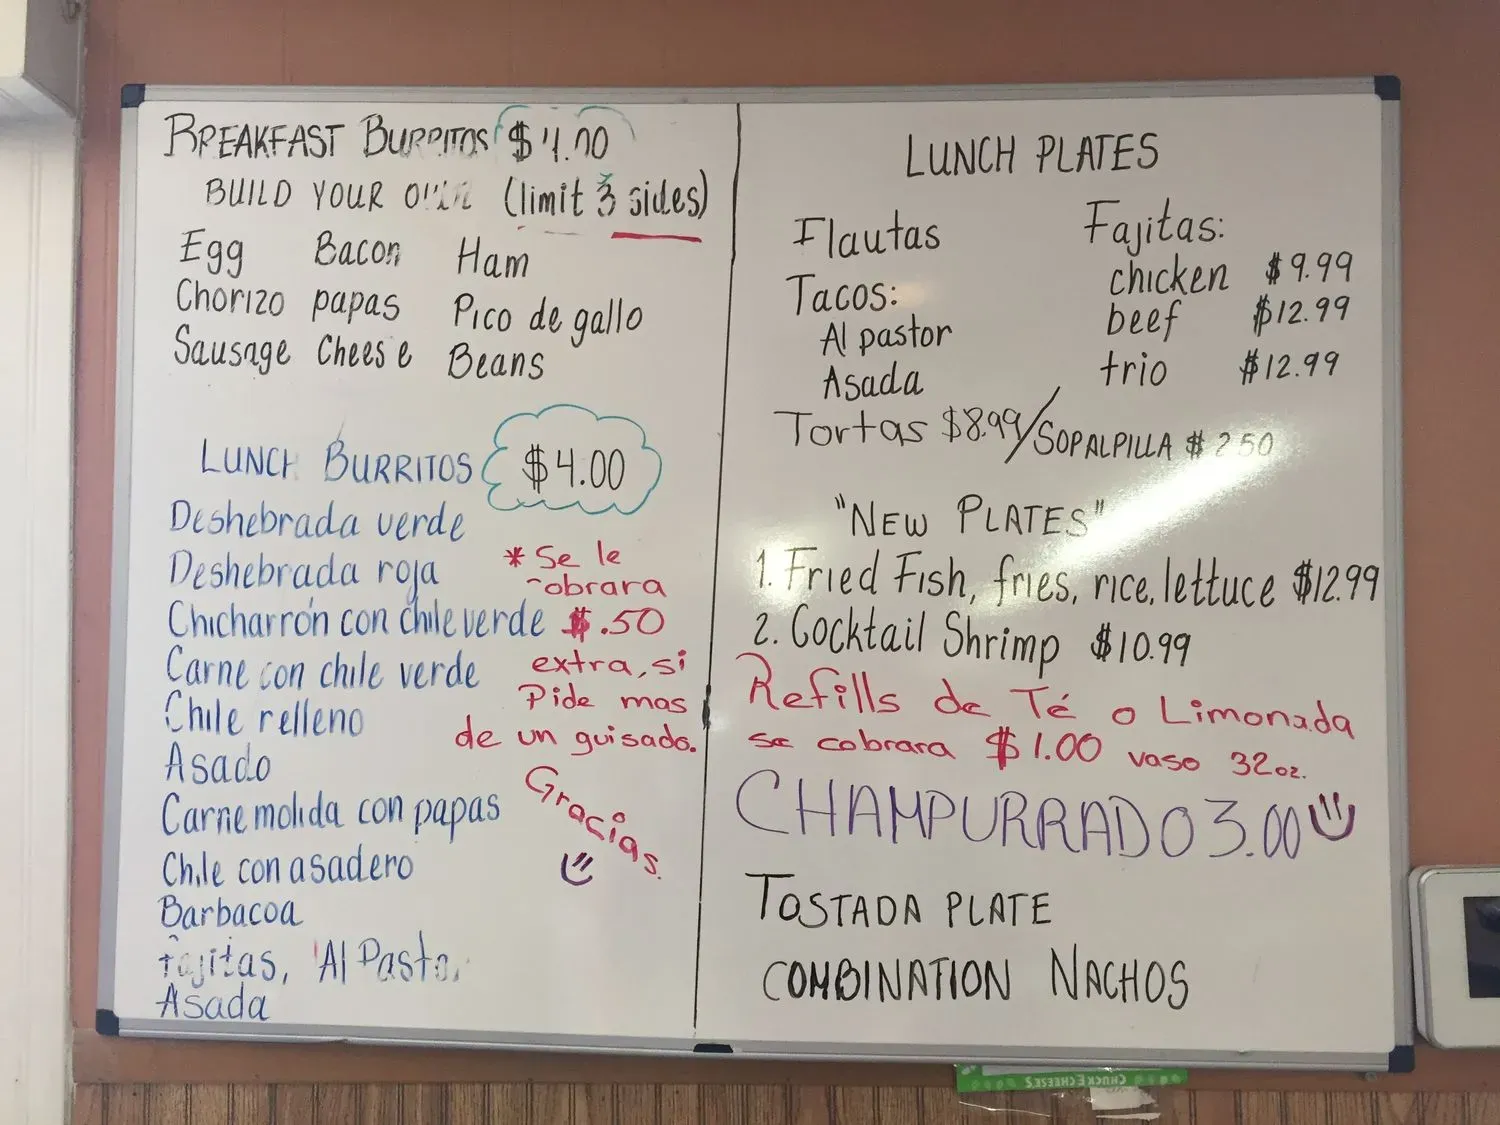 BREAKFAST BURRITOS $4.00
BUILD YOUR OWN (limit 3 sides)
Egg Bacon Ham
Chorizo papas Pico de gallo
Sausage Cheese Beans
LUNCH BURRITOS $4.00
Deshebrada verde
Deshebrada roja
Chicharrón con chile verde
Carne con chile verde
Chile relleno
Asado
Carne molida con papas
Chile con asadero
Barbacoa
Fajitas, Al Pastor,
Asada
* Se le
cobrara
$.50
extra, si
Pide mas
de un guisado.
Gracias.
LUNCH PLATES
Flautas
Tacos:
Al pastor
Asada
Fajitas:
chicken $9.99
beef $12.99
trio $12.99
Tortas $8.99/SOPALPILLA $2.50
"NEW PLATES"
1. Fried Fish, fries, rice, lettuce $12.99
2. Cocktail Shrimp $10.99
Refills de Té o Limonada
se cobrara $1.00 vaso 32oz.
CHAMPURRADO 3.00
TOSTADA PLATE
COMBINATION NACHOS
CHUCKECHEESE'S